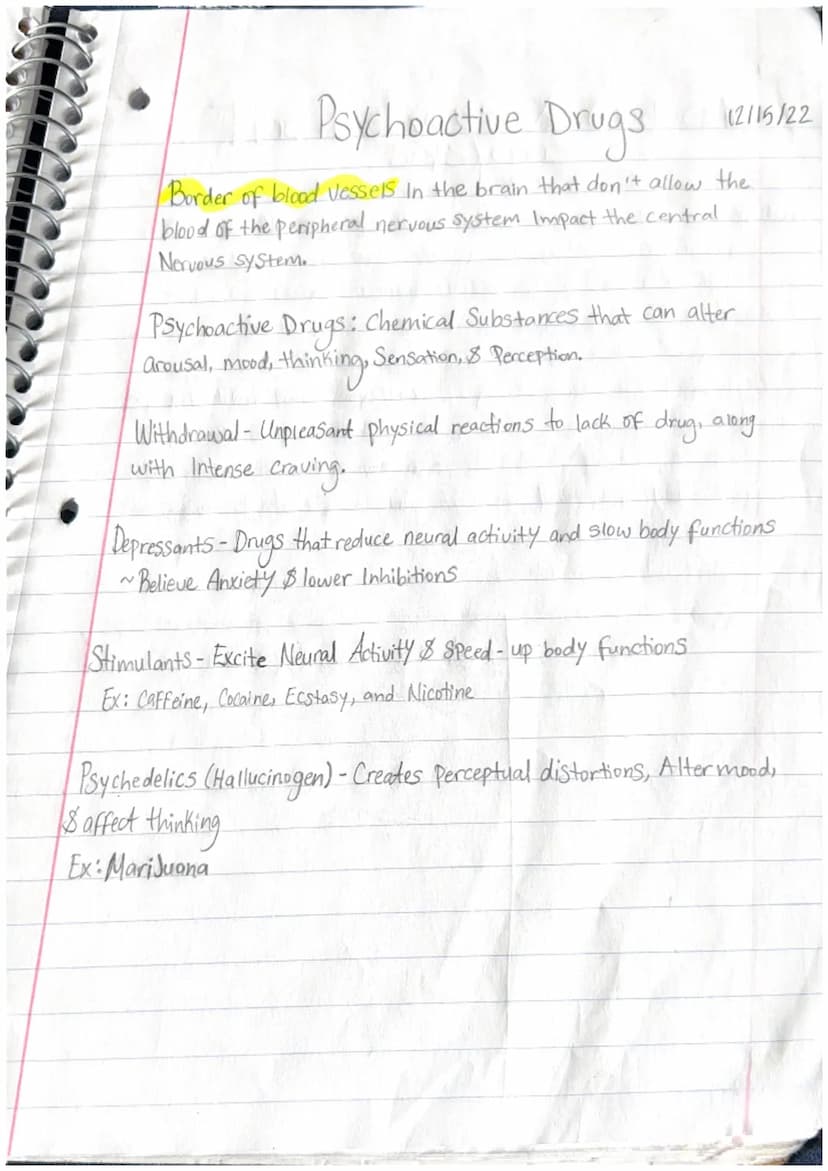 Psychoactive Drugs 12/15/22
Border of blood vessels In the brain that don't allow the
blood of the peripheral nervous system Impact the central
Nervous system.
Psychoactive Drugs: Chemical Substances that can alter
arousal, mood, thinking, Sensation, & Perception.
Withdrawal - Unpleasant physical reactions to lack of drug, along
with Intense craving.
Depressants - Drugs that reduce neural activity and slow body functions
~ Believe Anxiety & lower Inhibitions
Stimulants - Excite Neural Activity & speed-up body functions
Ex: Caffeine, Cocaine, Ecstasy, and Nicotine
Psychedelics (Hallucinogen) - Creates perceptual distortions, Alter mood,
& affect thinking
Ex: MariJuana